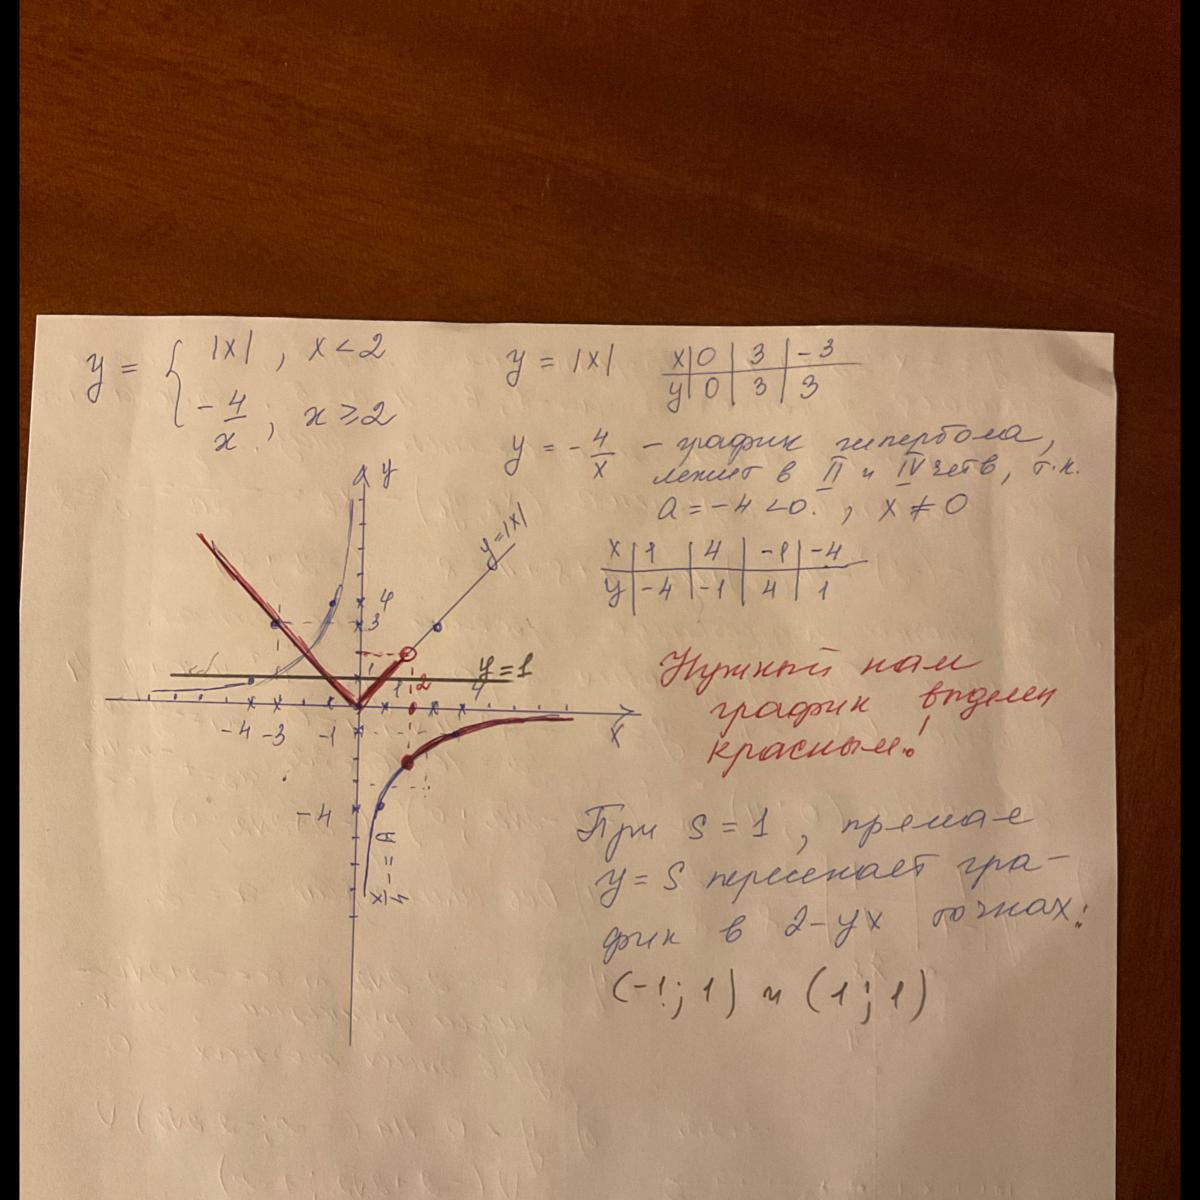 y = { |x| , x < 2
- 4/x ; x ≥ 2
y = |x|
x | 0 | 3 | -3
y | 0 | 3 | 3
y = - 4/x - график гипербола,
лежит в II и IV четв, т.к.
a = -4 < 0. , x ≠ 0
x | 1 | 4 | -1 | -4
y | -4 | -1 | 4 | 1
y
y=|x|
4
3
1
y=1
-4 -3 -1 1 2 4
x
-4
y = -4/x
Нужный нам
график выделен
красным!
При s = 1 , прямая
y = s пересекает гра-
фик в 2-ух точках:
(-1; 1) и (1; 1)